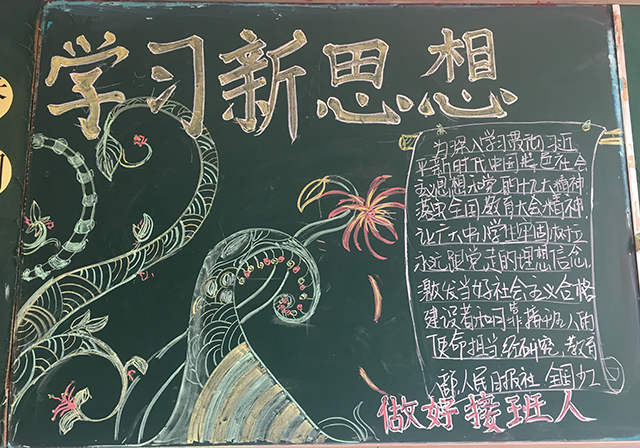 学习新思想
为深入学习贯彻习近
平新时代中国特色社会
主义思想和党的十九大精神
落实全国教育大会精神,
让广大中小学生牢固树立
永远跟党走的理想信念,
激发当好社会主义合格
建设者和可靠接班人的
使命担当经研究,教育
部人民日报社 全国少工
做好接班人